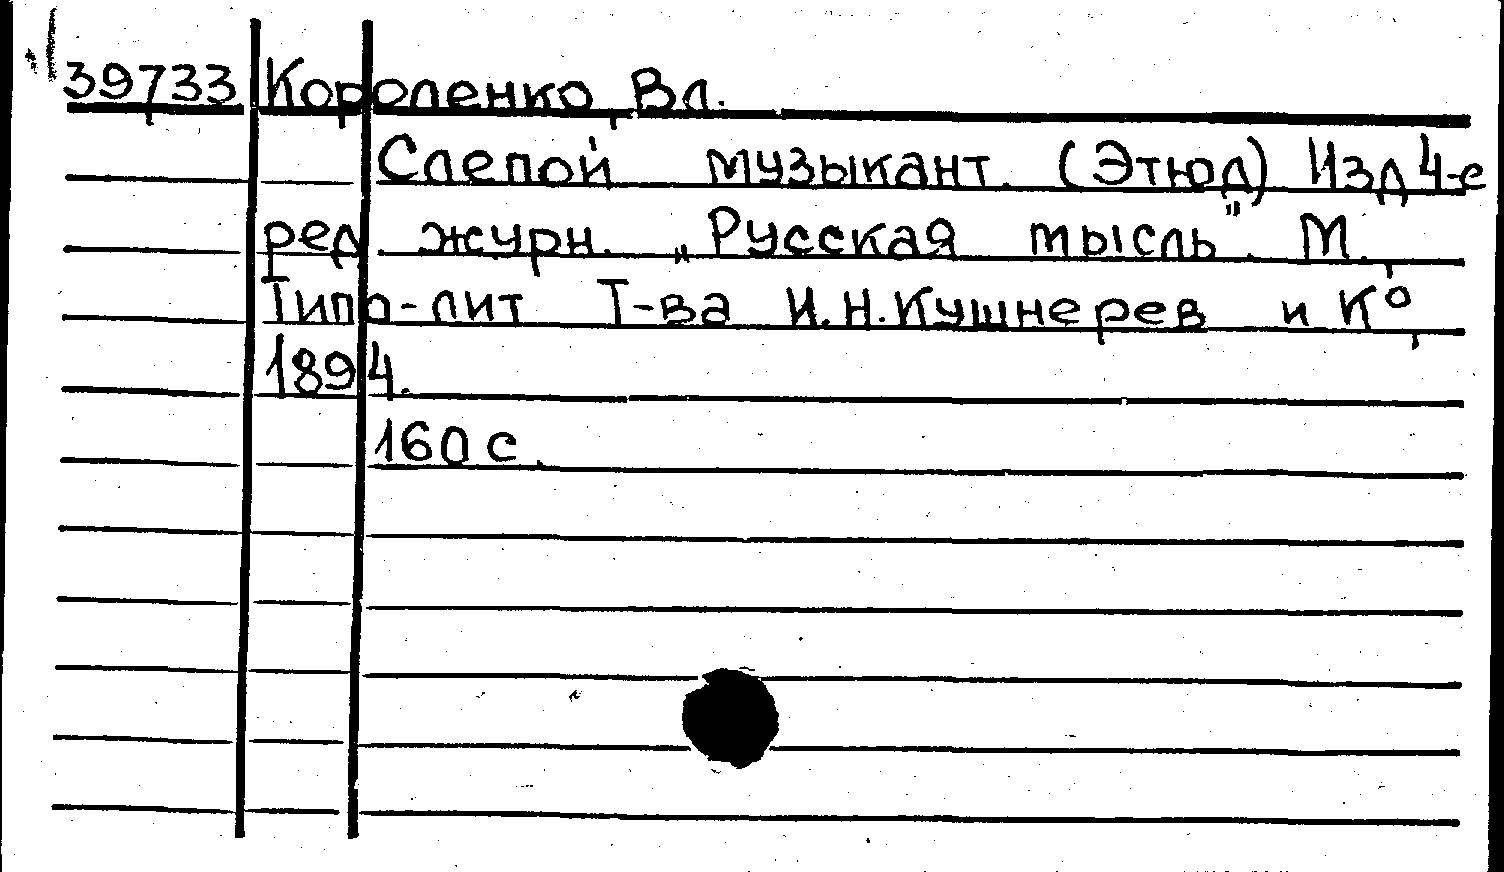 39733 Короленко, Вл.
Слепой музыкант. (Этюд) Изд 4-е
ред. журн. „Русская мысль". М.,
Типо-лит Т-ва И.Н.Кушнерев и К°,
1894.
160 с.